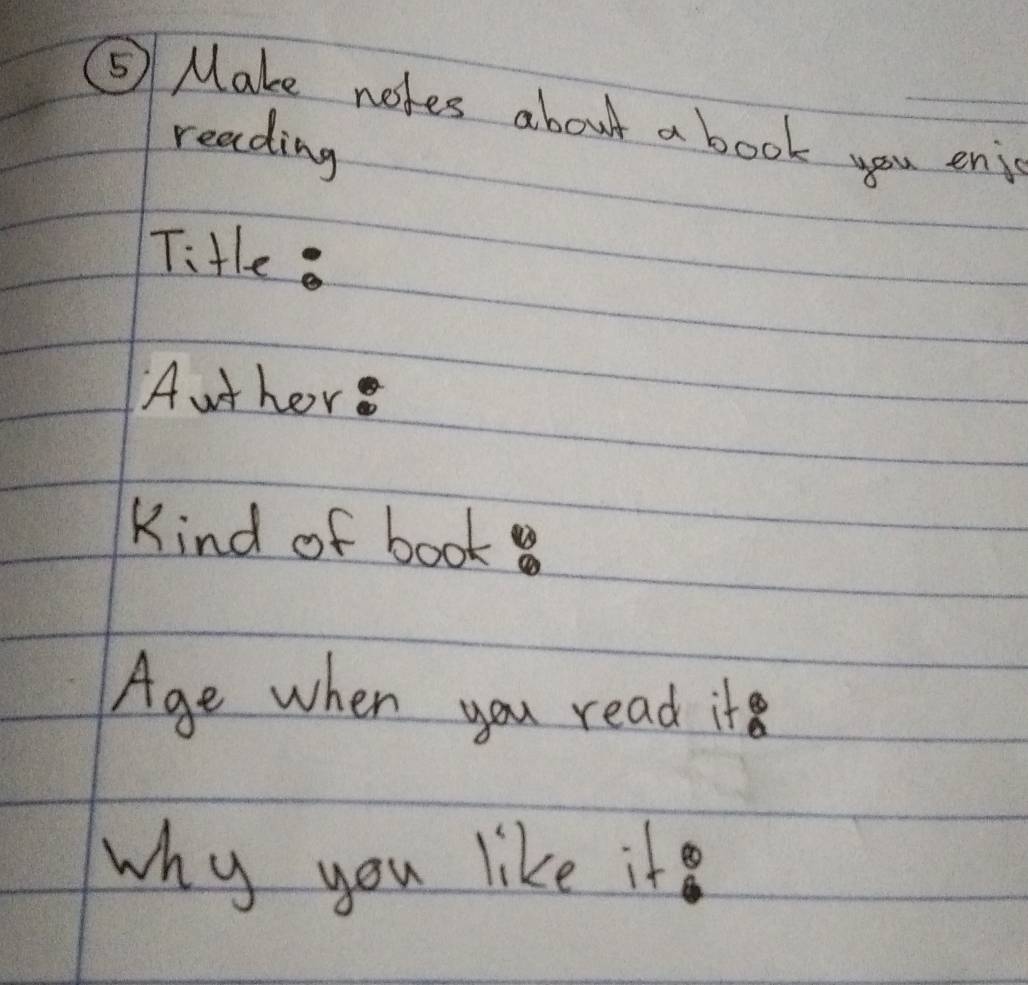 5 Make notes about a book you enjo
reading
Title:
Auther:
Kind of book:
Age when you read it:
Why you like it: